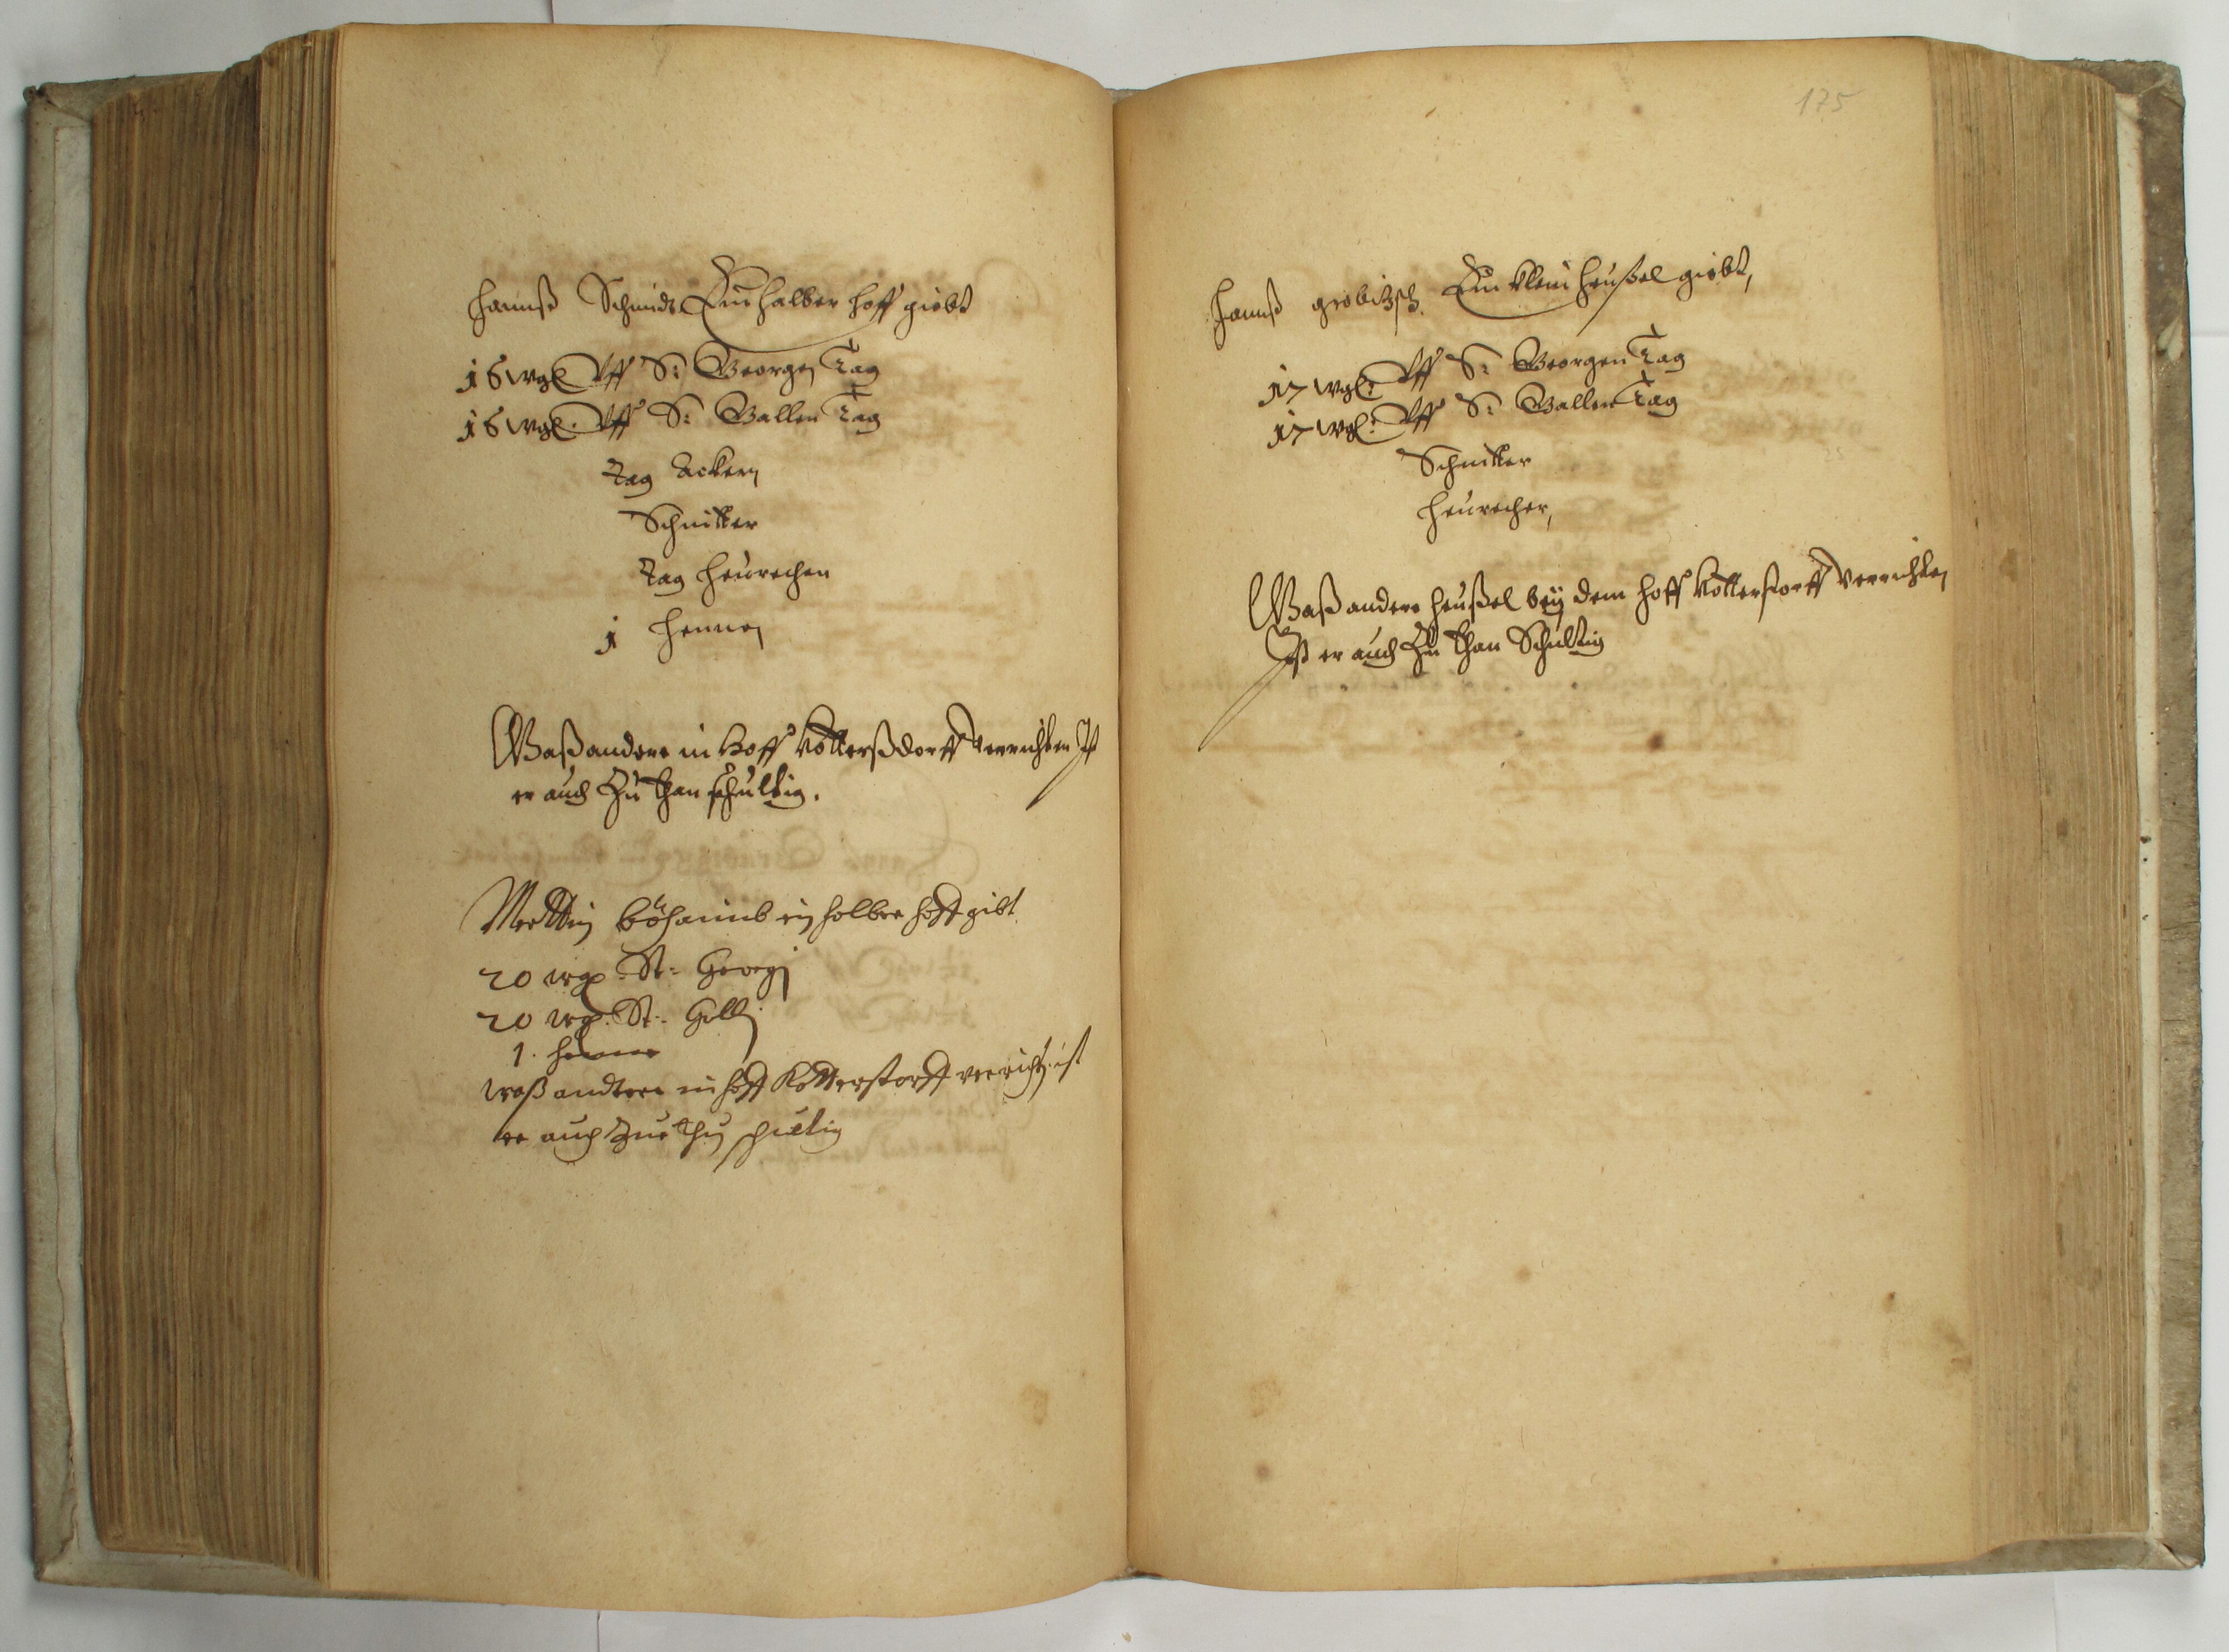 Hannß Schmidt Ein halber hoff giebt
16 wgl. Vff S: Georgen Tag
16 wgl. Vff S: Gallen Tag
Tag Ackern
Schnitter
Tag heurechen
1 hennen
Waß andere in Hoff Kotterßdorff verrichten Ist
er auch Zu than schultig.
Merttin ein halber hoff gibt
20 wgl. St: Georgj
20 wgl. St: Gallj
1. henne
waß andtere in hoff Kotterstorff verricht ist
er auch Zue thun schultig
175
Hannß grobitzsch Ein klein heußel giebt,
17 wgl: Vff S: Georgen Tag
17 wgl: Vff S: Gallen Tag
Schnitter
heurecher,
Waß andere heußel bey dem hoff Kotterstorff verrichten
Ist er auch Zu than Schultig